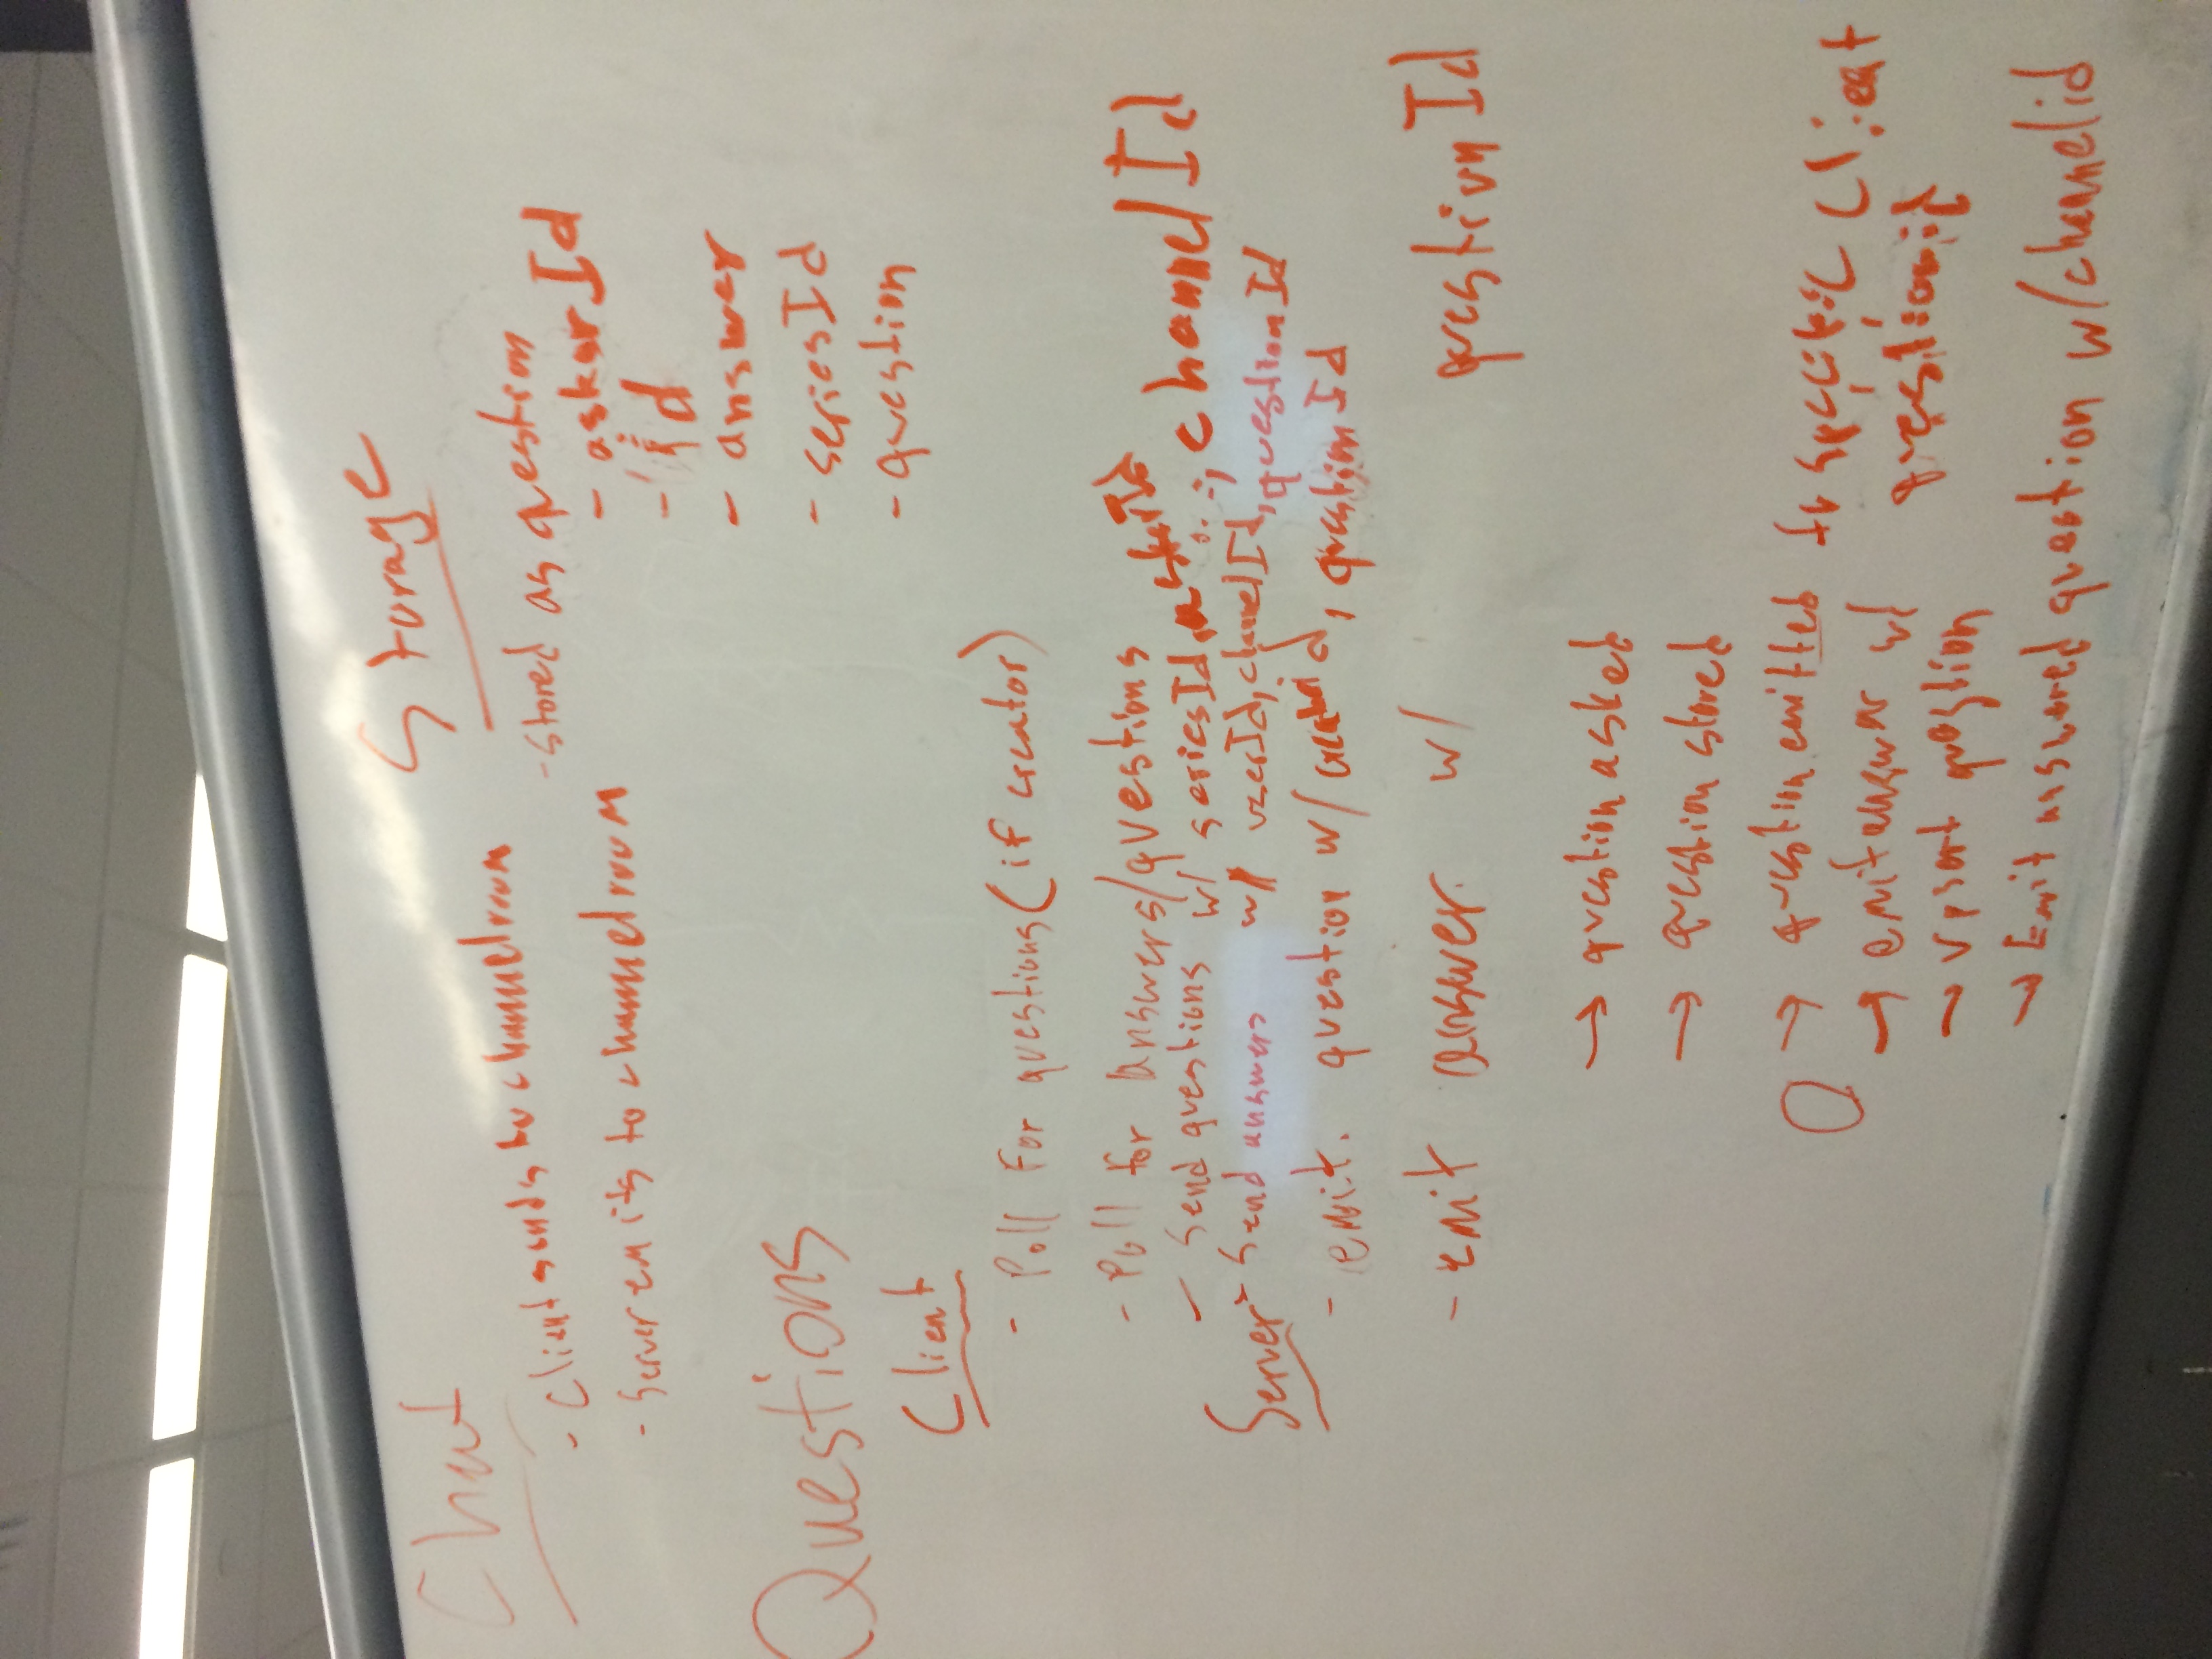 Chat
- Client sends to channel room
- Server emits to channel room
Storage
- Stored as question
- askerId
- id
- answer
- seriesId
- question
Questions
Client
- Poll for questions (if creator)
- Poll for answers/questions
- Send questions w/ seriesId, askerId, channelId
- Send answers w/ userId, channelId, questionId
Server
- emit question w/ creatorid, questionId
- emit answer w/ questionId
→ question asked
→ question stored
→ question emitted to specific client
→ emit answer w/ questionid
→ upsert question
→ Emit answered question w/channelid